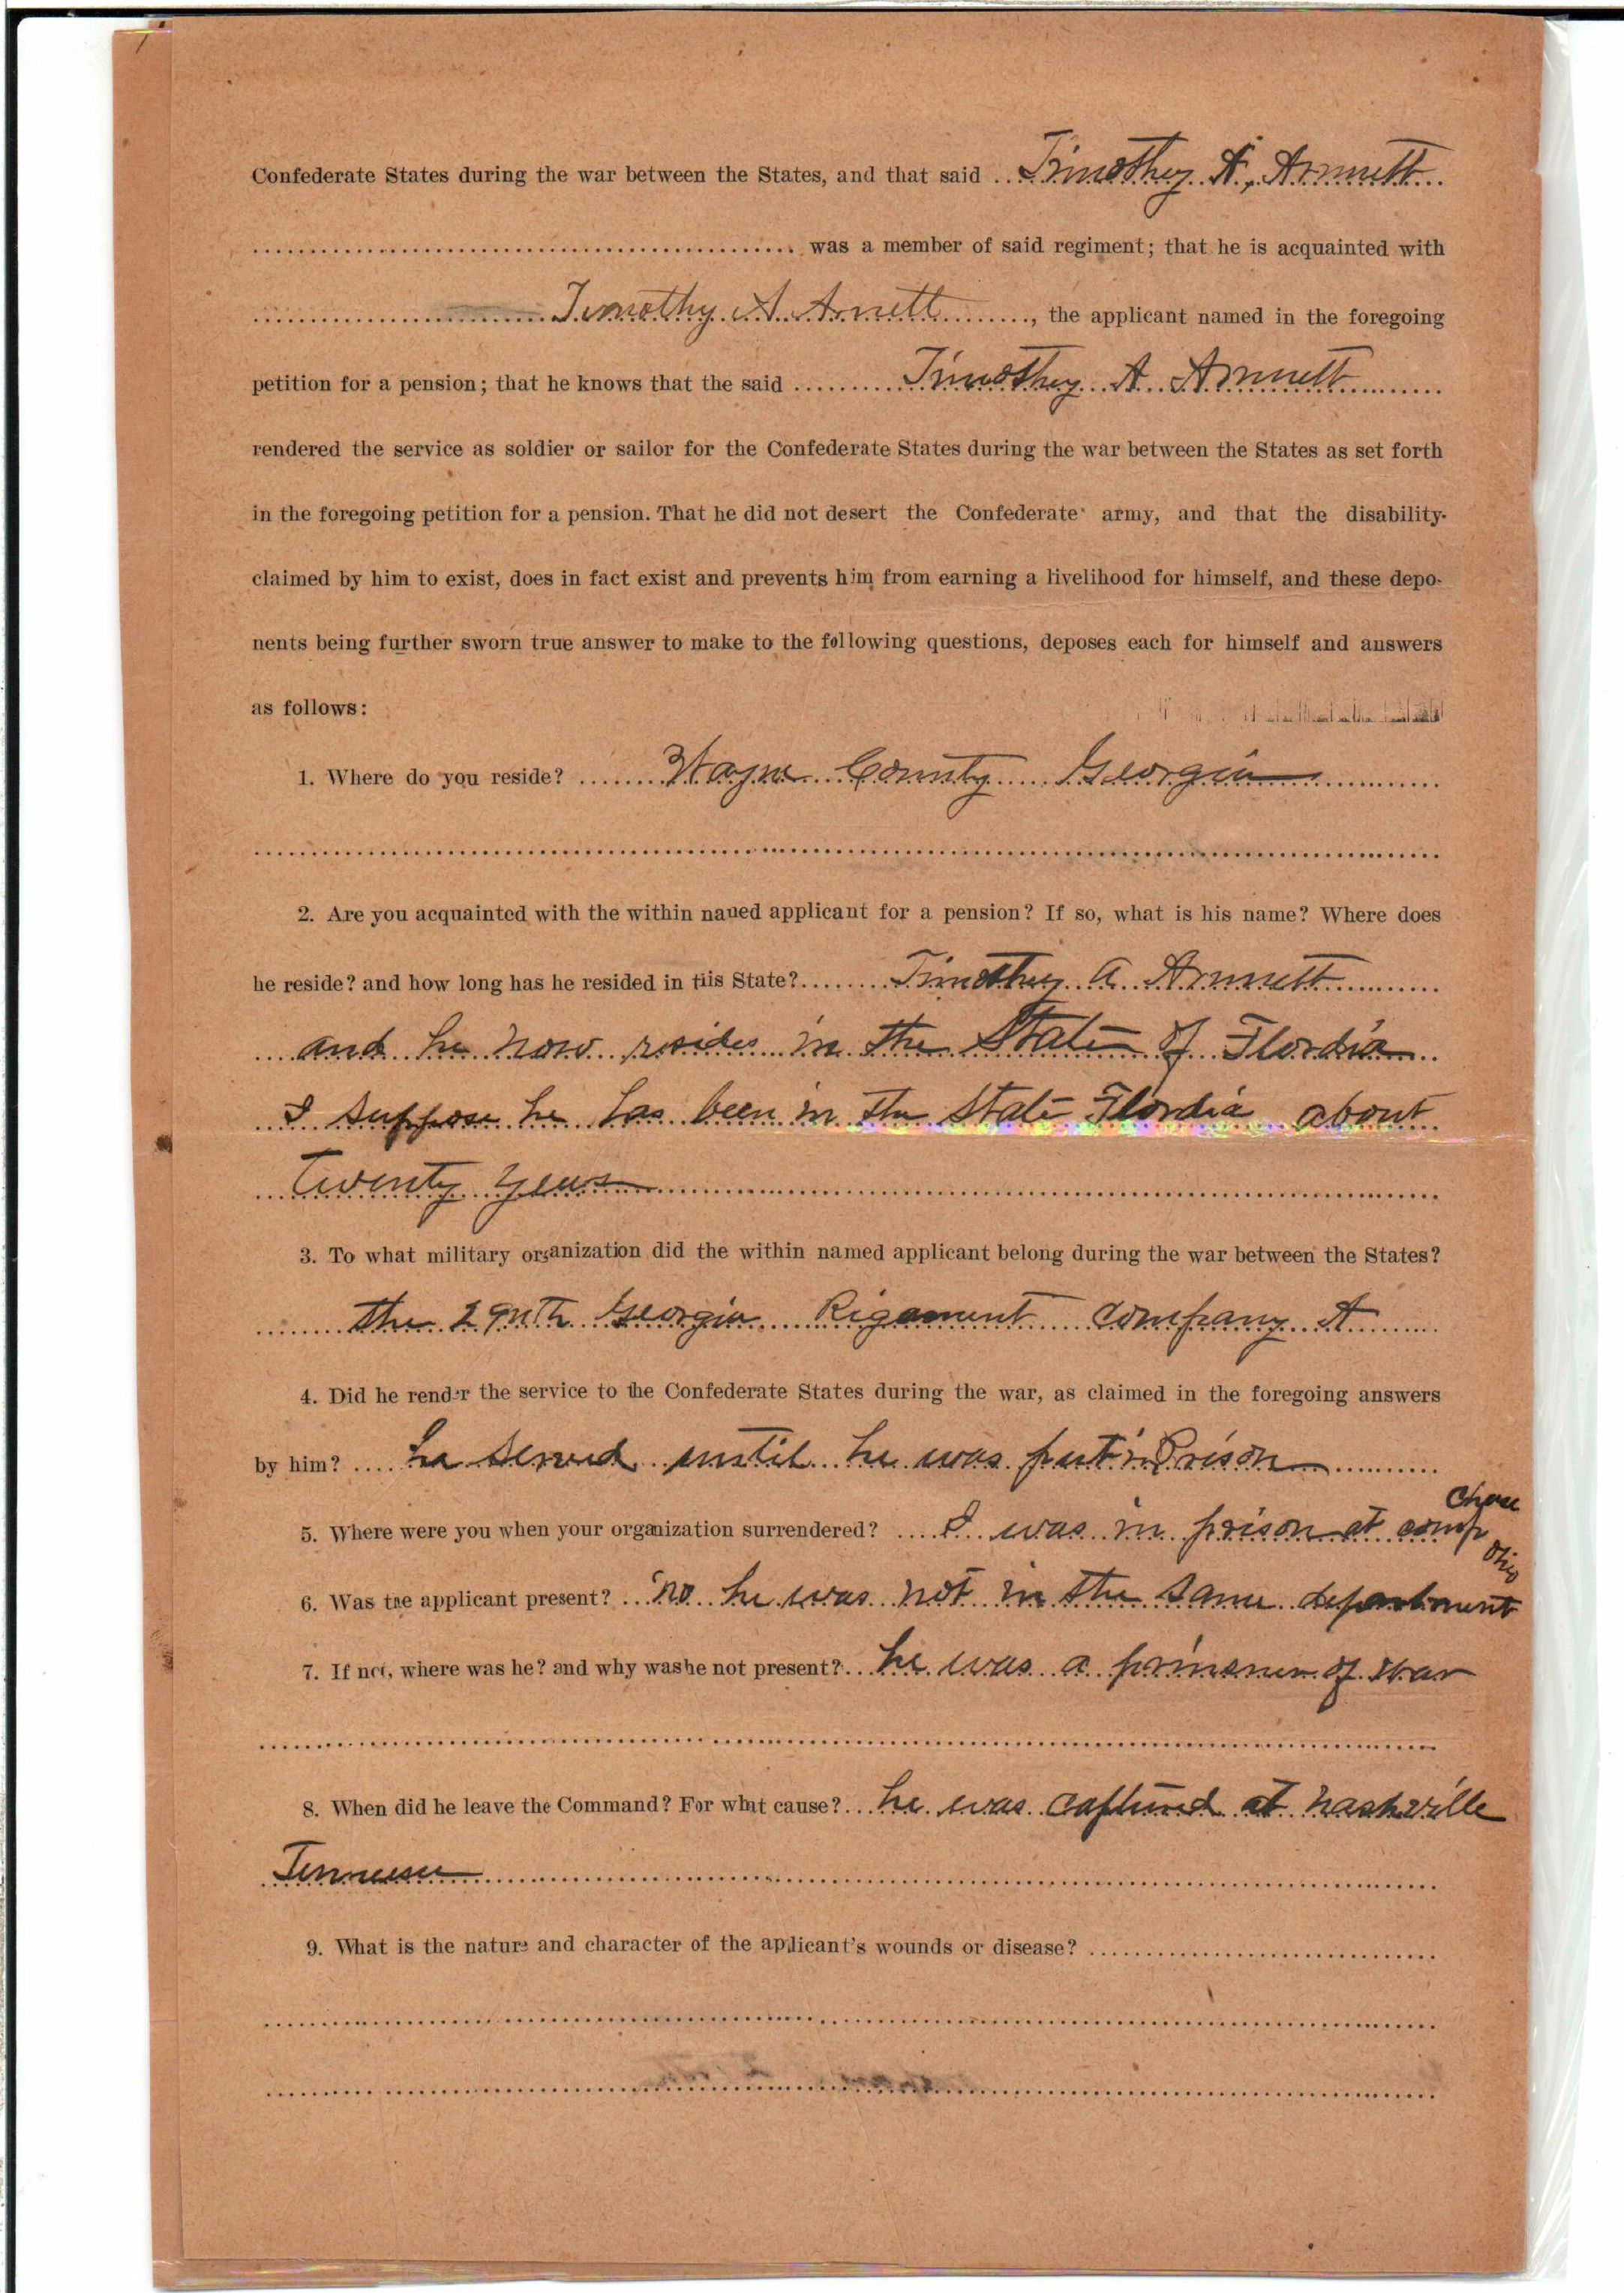 Confederate States during the war between the States, and that said Timothey A, Arnnett
was a member of said regiment; that he is acquainted with
Timothy A Arnett, the applicant named in the foregoing
petition for a pension; that he knows that the said Timothey A Arnnett
rendered the service as soldier or sailor for the Confederate States during the war between the States as set forth
in the foregoing petition for a pension. That he did not desert the Confederate army, and that the disability
claimed by him to exist, does in fact exist and prevents him from earning a livelihood for himself, and these depo-
nents being further sworn true answer to make to the following questions, deposes each for himself and answers
as follows:
1. Where do you reside? Wayne County Georgia
2. Are you acquainted with the within naued applicant for a pension? If so, what is his name? Where does
he reside? and how long has he resided in tiis State? Timothey A. Arnnett
and he now resides in the State of Flordia
I suppose he has been in the State Flordia about
Twenty years
3. To what military organization did the within named applicant belong during the war between the States?
the 29nth Georgia Rigament Company A
4. Did he render the service to the Confederate States during the war, as claimed in the foregoing answers
by him? he served until he was put in Prison
5. Where were you when your organization surrendered? I was in prison at comp Chase Ohio
6. Was tne applicant present? no he was not in the same department
7. If not, where was he? and why was he not present? he was a prinsner of war
8. When did he leave the Command? For what cause? he was captured at Nashville
Tennessee
9. What is the nature and character of the applicant's wounds or disease?